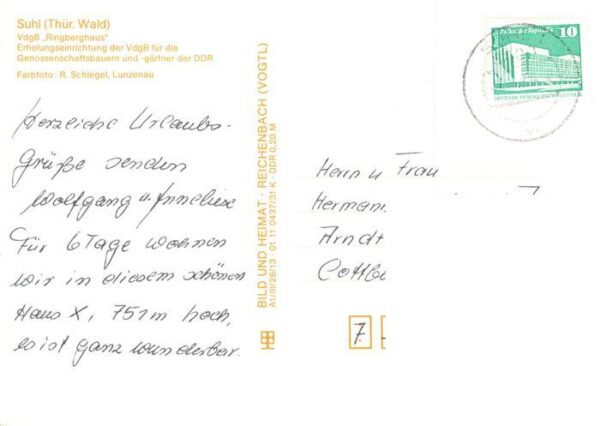 Suhl (Thür. Wald)
VdgB „Ringberghaus"
Erholungseinrichtung der VdgB für die
Genossenschaftsbauern und -gärtner der DDR
Farbfoto: R. Schlegel, Lunzenau
Herzliche Urlaubs-
Grüße senden
Wolfgang u. Anneliese
Für 6 Tage wohnen
wir in diesem schönen
Haus X, 751 m hoch,
es ist ganz wunderbar.
BILD UND HEIMAT · REICHENBACH (VOGTL)
A1/III/26/13 · 01 11 0437/31 K · DDR 0,20 M
Berlin Palast der Republik
10
DEUTSCHE DEMOKRATISCHE REPUBLIK
Herrn u Frau
Herman
Arndt
Cottb
7